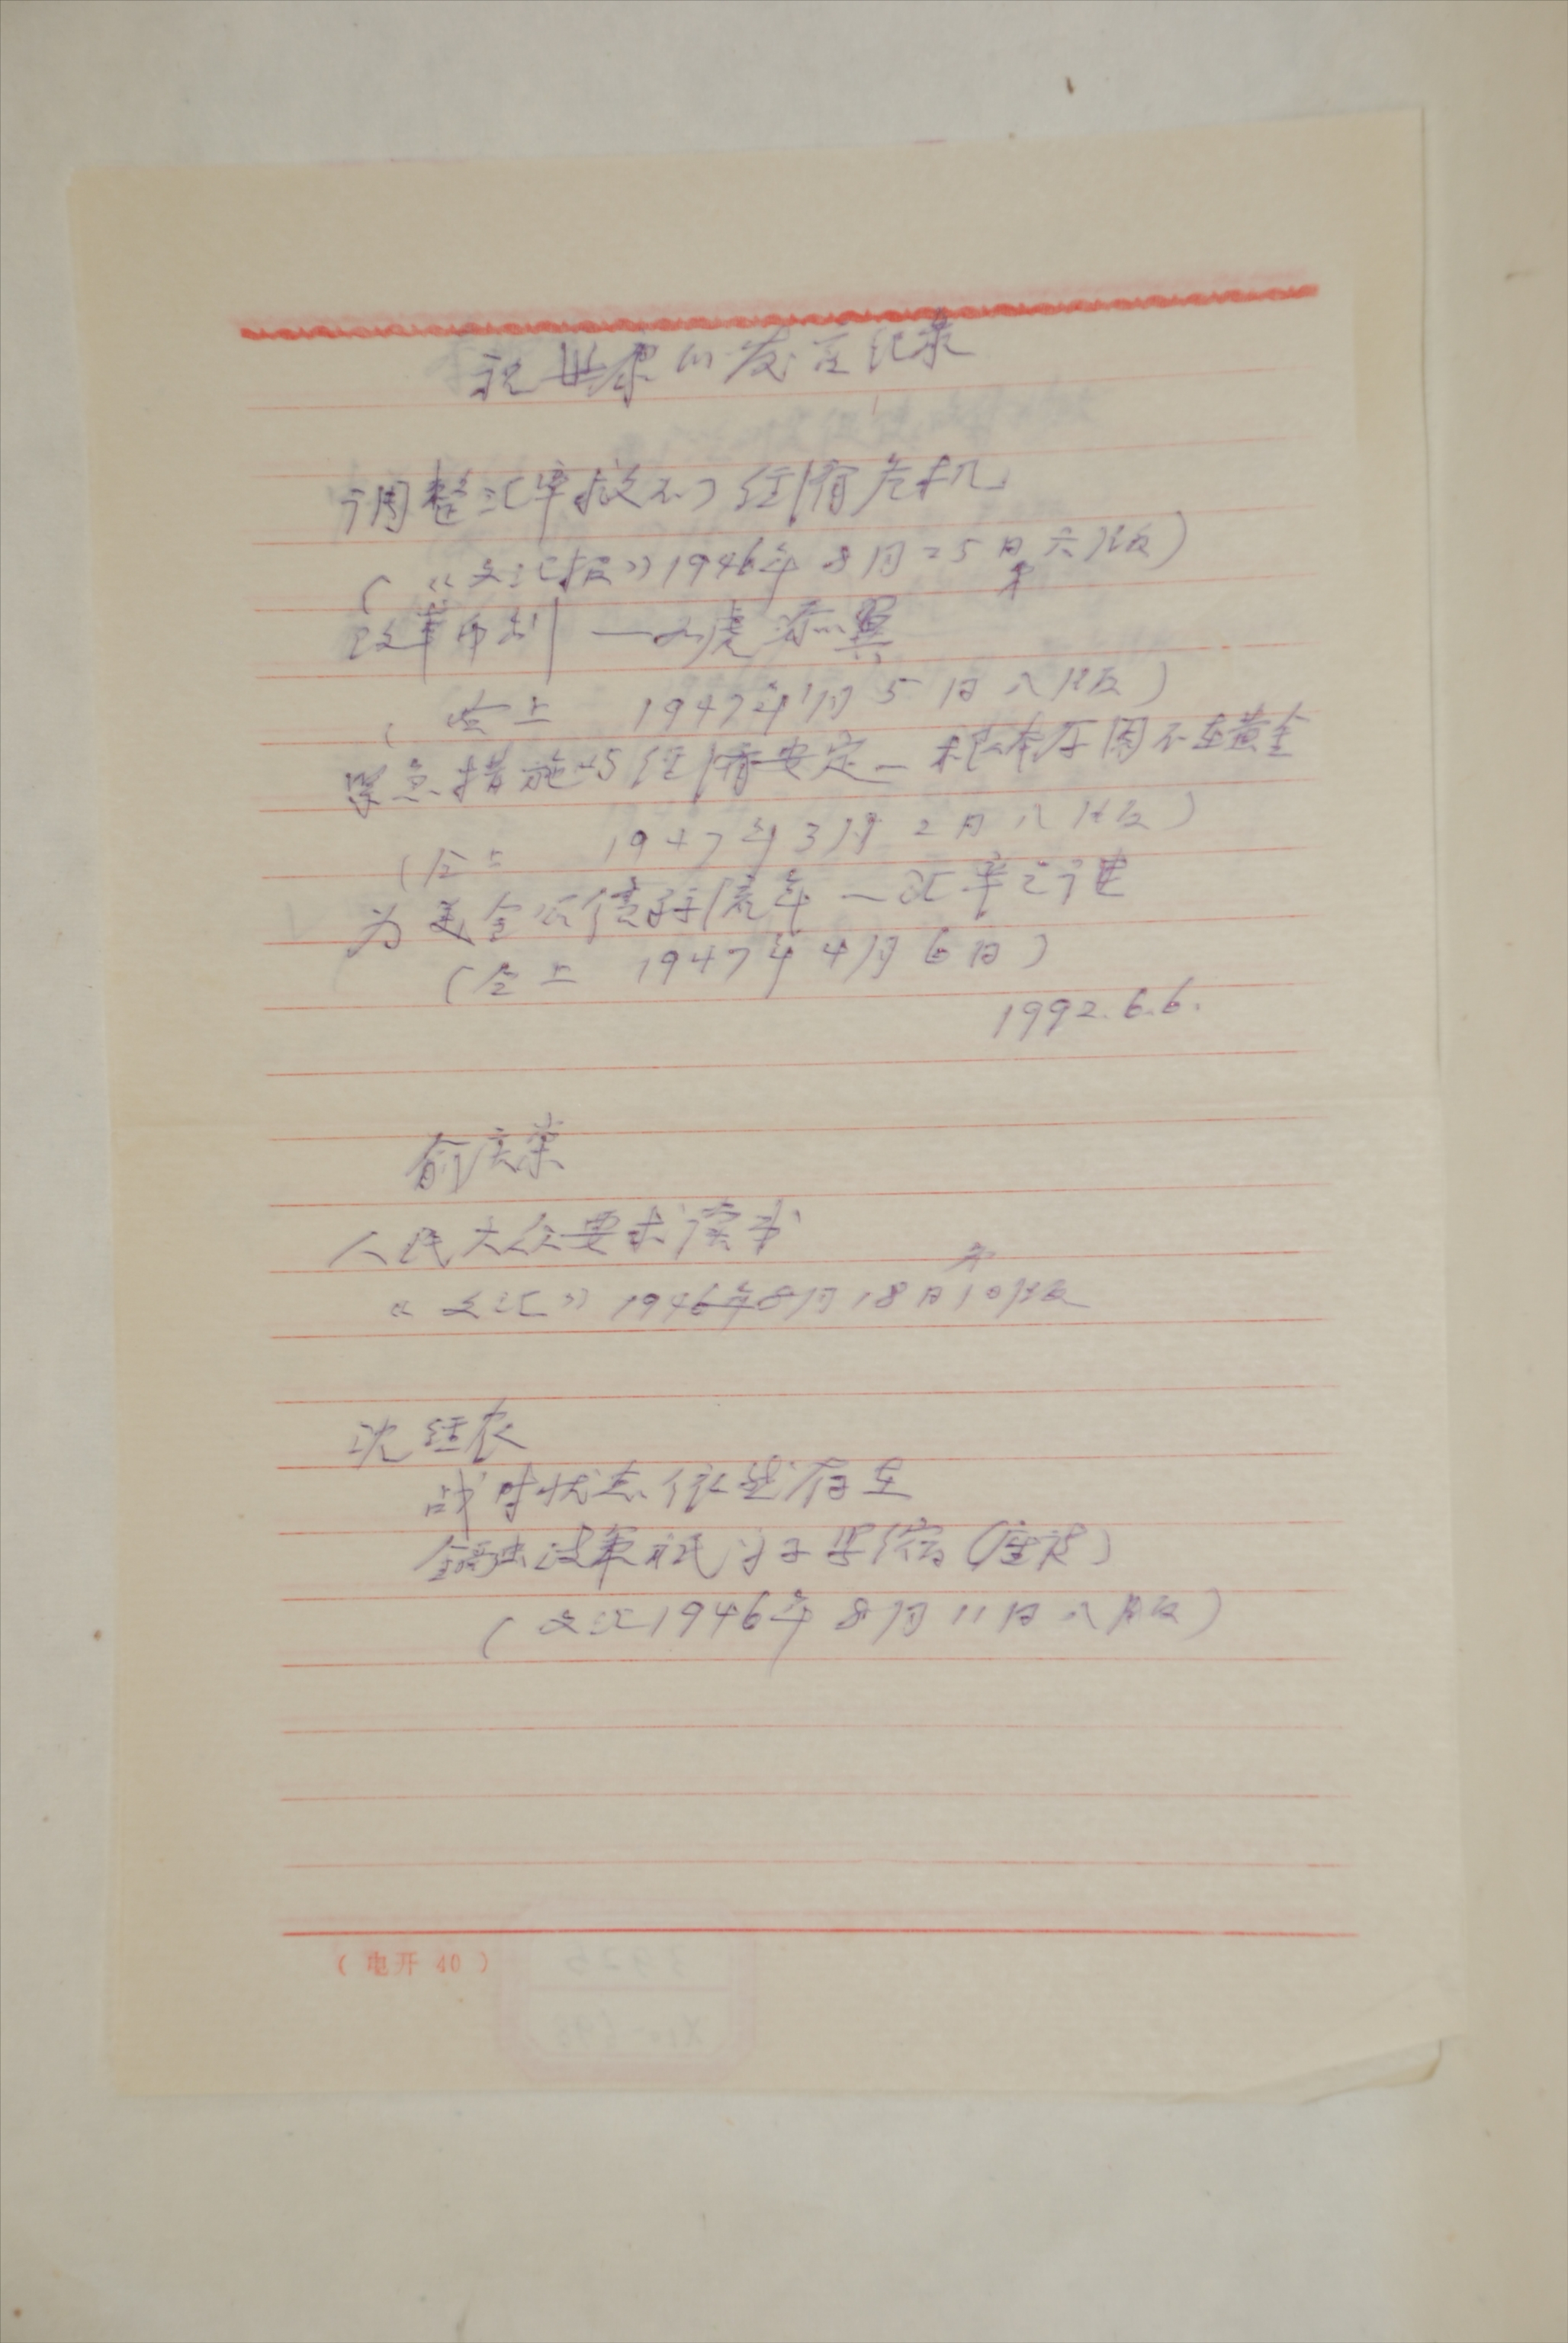 祝世康的发言记录
调整汇率救不了经济危机
(《文汇报》1946年8月25日第六版)
改革币制—如虎添翼
(仝上 1947年1月5日八版)
紧急措施与经济安定—根本原因不在黄金
(仝上 1947年3月2日八版)
为美金公债 汇率之谜
(仝上 1947年4月6日)
1992.6.6.
俞庆棠
人民大众要求读书
《文汇》1946年8月18日第10版
沈经农
战时状态依然存在
输出政策 紧缩(座谈)
(文汇1946年8月11日八版)
(电开 40)